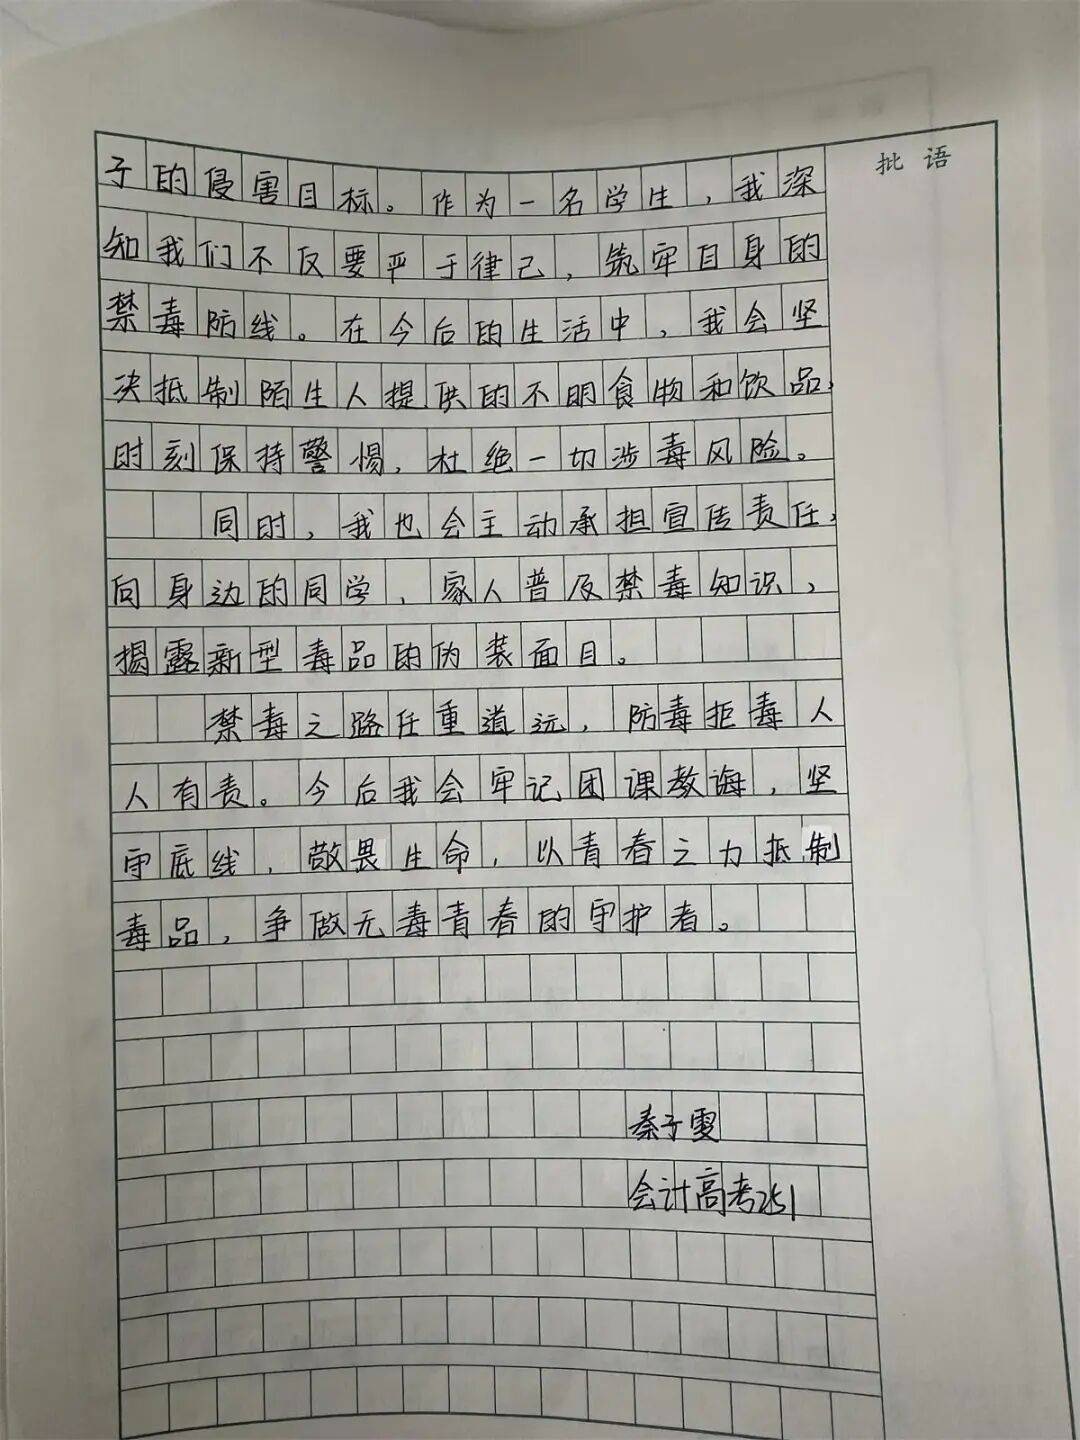 批语
子的侵害目标。作为一名学生，我深
知我们不仅要严于律己，筑牢自身的
禁毒防线。在今后的生活中，我会坚
决抵制陌生人提供的不明食物和饮品，
时刻保持警惕，杜绝一切涉毒风险。
同时，我也会主动承担宣传责任，
向身边的同学、家人普及禁毒知识，
揭露新型毒品的伪装面目。
禁毒之路任重道远，防毒拒毒人
人有责。今后我会牢记团课教诲，坚
守底线，敬畏生命，以青春之力抵制
毒品，争做无毒青春的守护者。
秦子雯
会计高考251